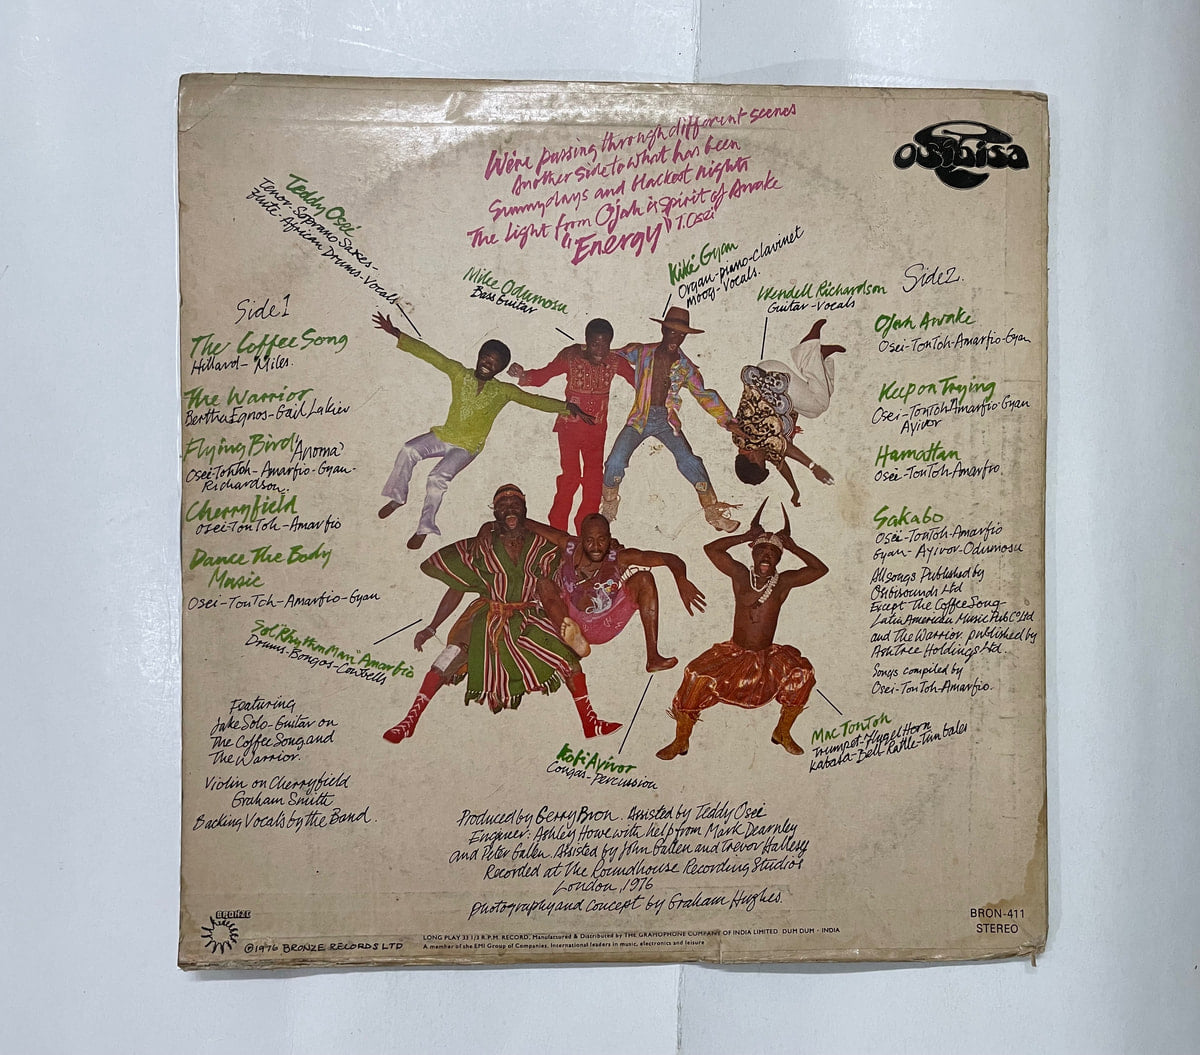 We're passing through different scenes
Another side to what has been
Sunnydays and blackest nights
The Light from Ojah is spirit of Awake
"Energy" T. Osei
Osibisa
Teddy Osei
Tenor-Soprano Saxes-
Flute-African Drums-Vocals
Mike Odumosu
Bass Guitar
Kiki Gyan
Organ-piano-clavinet
moog-Vocals.
Wendell Richardson
Guitar-Vocals
Side 1
The Coffee Song
Hilliard-Miles.
The Warrior
Bertha Egnos-Gail Lakier
Flying Bird 'Anoma'
Osei-TonToh-Amarfio-Gyan-
Richardson.
Cherryfield
Osei-TonToh-Amarfio
Dance The Body
Music
Osei-TonToh-Amarfio-Gyan
Side 2.
Ojah Awake
Osei-TonToh-Amarfio-Gyan
Keep on Trying
Osei-TonToh-Amarfio-Gyan
Ayivor
Hamattan
Osei-TonToh-Amarfio
Sakabo
Osei-TonToh-Amarfio
Gyan-Ayivor-Odumosu
All songs Published by
Osibisounds Ltd
Except The Coffee Song-
Latin American Music Pub Co Ltd
and The Warrior published by
Ash Tree Holdings Ltd.
Songs compiled by
Osei-TonToh-Amarfio.
Sol "Rhythm Man" Amarfio
Drums-Bongos-Cowbells
Kofi Ayivor
Congas-Percussion
Mac TonToh
Trumpet-Flugel Horn
Kabasa-Bell-Rattle-Timbales
Featuring
Jake Solo-Guitar on
The Coffee Song and
The Warrior.
Violin on Cherryfield
Graham Smith
Backing Vocals by the Band.
Produced by Gerry Bron. Assisted by Teddy Osei
Engineer: Ashley Howe with help from Mark Dearnley
and Peter Gallen. Assisted by John Gallen and Trevor Hallesy
Recorded at The Roundhouse Recording Studios
London, 1976
Photography and concept by Graham Hughes.
BRONZE
©1976 BRONZE RECORDS LTD
LONG PLAY 33 1/3 R.P.M. RECORD. Manufactured & Distributed by THE GRAMOPHONE COMPANY OF INDIA LIMITED DUM DUM - INDIA
A member of the EMI Group of Companies. International leaders in music, electronics and leisure
BRON-411
STEREO